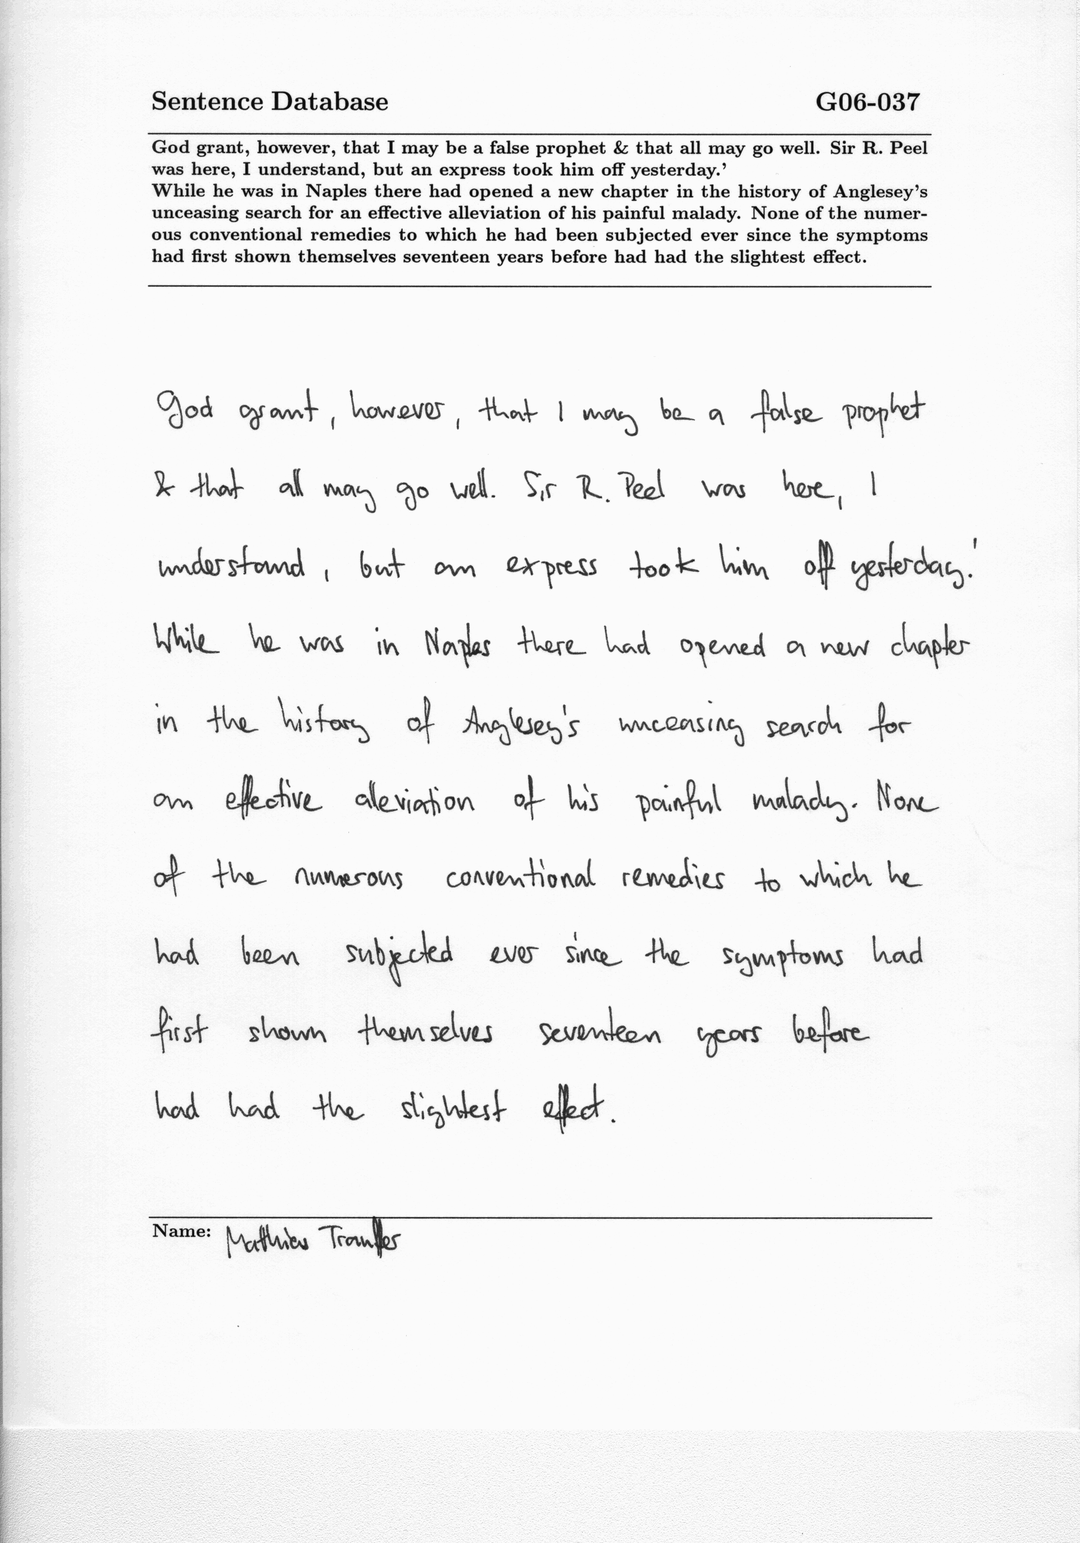 Sentence Database G06-037
God grant, however, that I may be a false prophet & that all may go well. Sir R. Peel
was here, I understand, but an express took him off yesterday.'
While he was in Naples there had opened a new chapter in the history of Anglesey's
unceasing search for an effective alleviation of his painful malady. None of the numer-
ous conventional remedies to which he had been subjected ever since the symptoms
had first shown themselves seventeen years before had had the slightest effect.
God grant, however, that I may be a false prophet
& that all may go well. Sir R. Peel was here, I
understand, but an express took him off yesterday.'
While he was in Naples there had opened a new chapter
in the history of Anglesey's unceasing search for
an effective aleviation of his painful malady. None
of the numerous conventional remedies to which he
had been subjected ever since the symptoms had
first shown themselves seventeen years before
had had the slightest effect.
Name: Mathieu